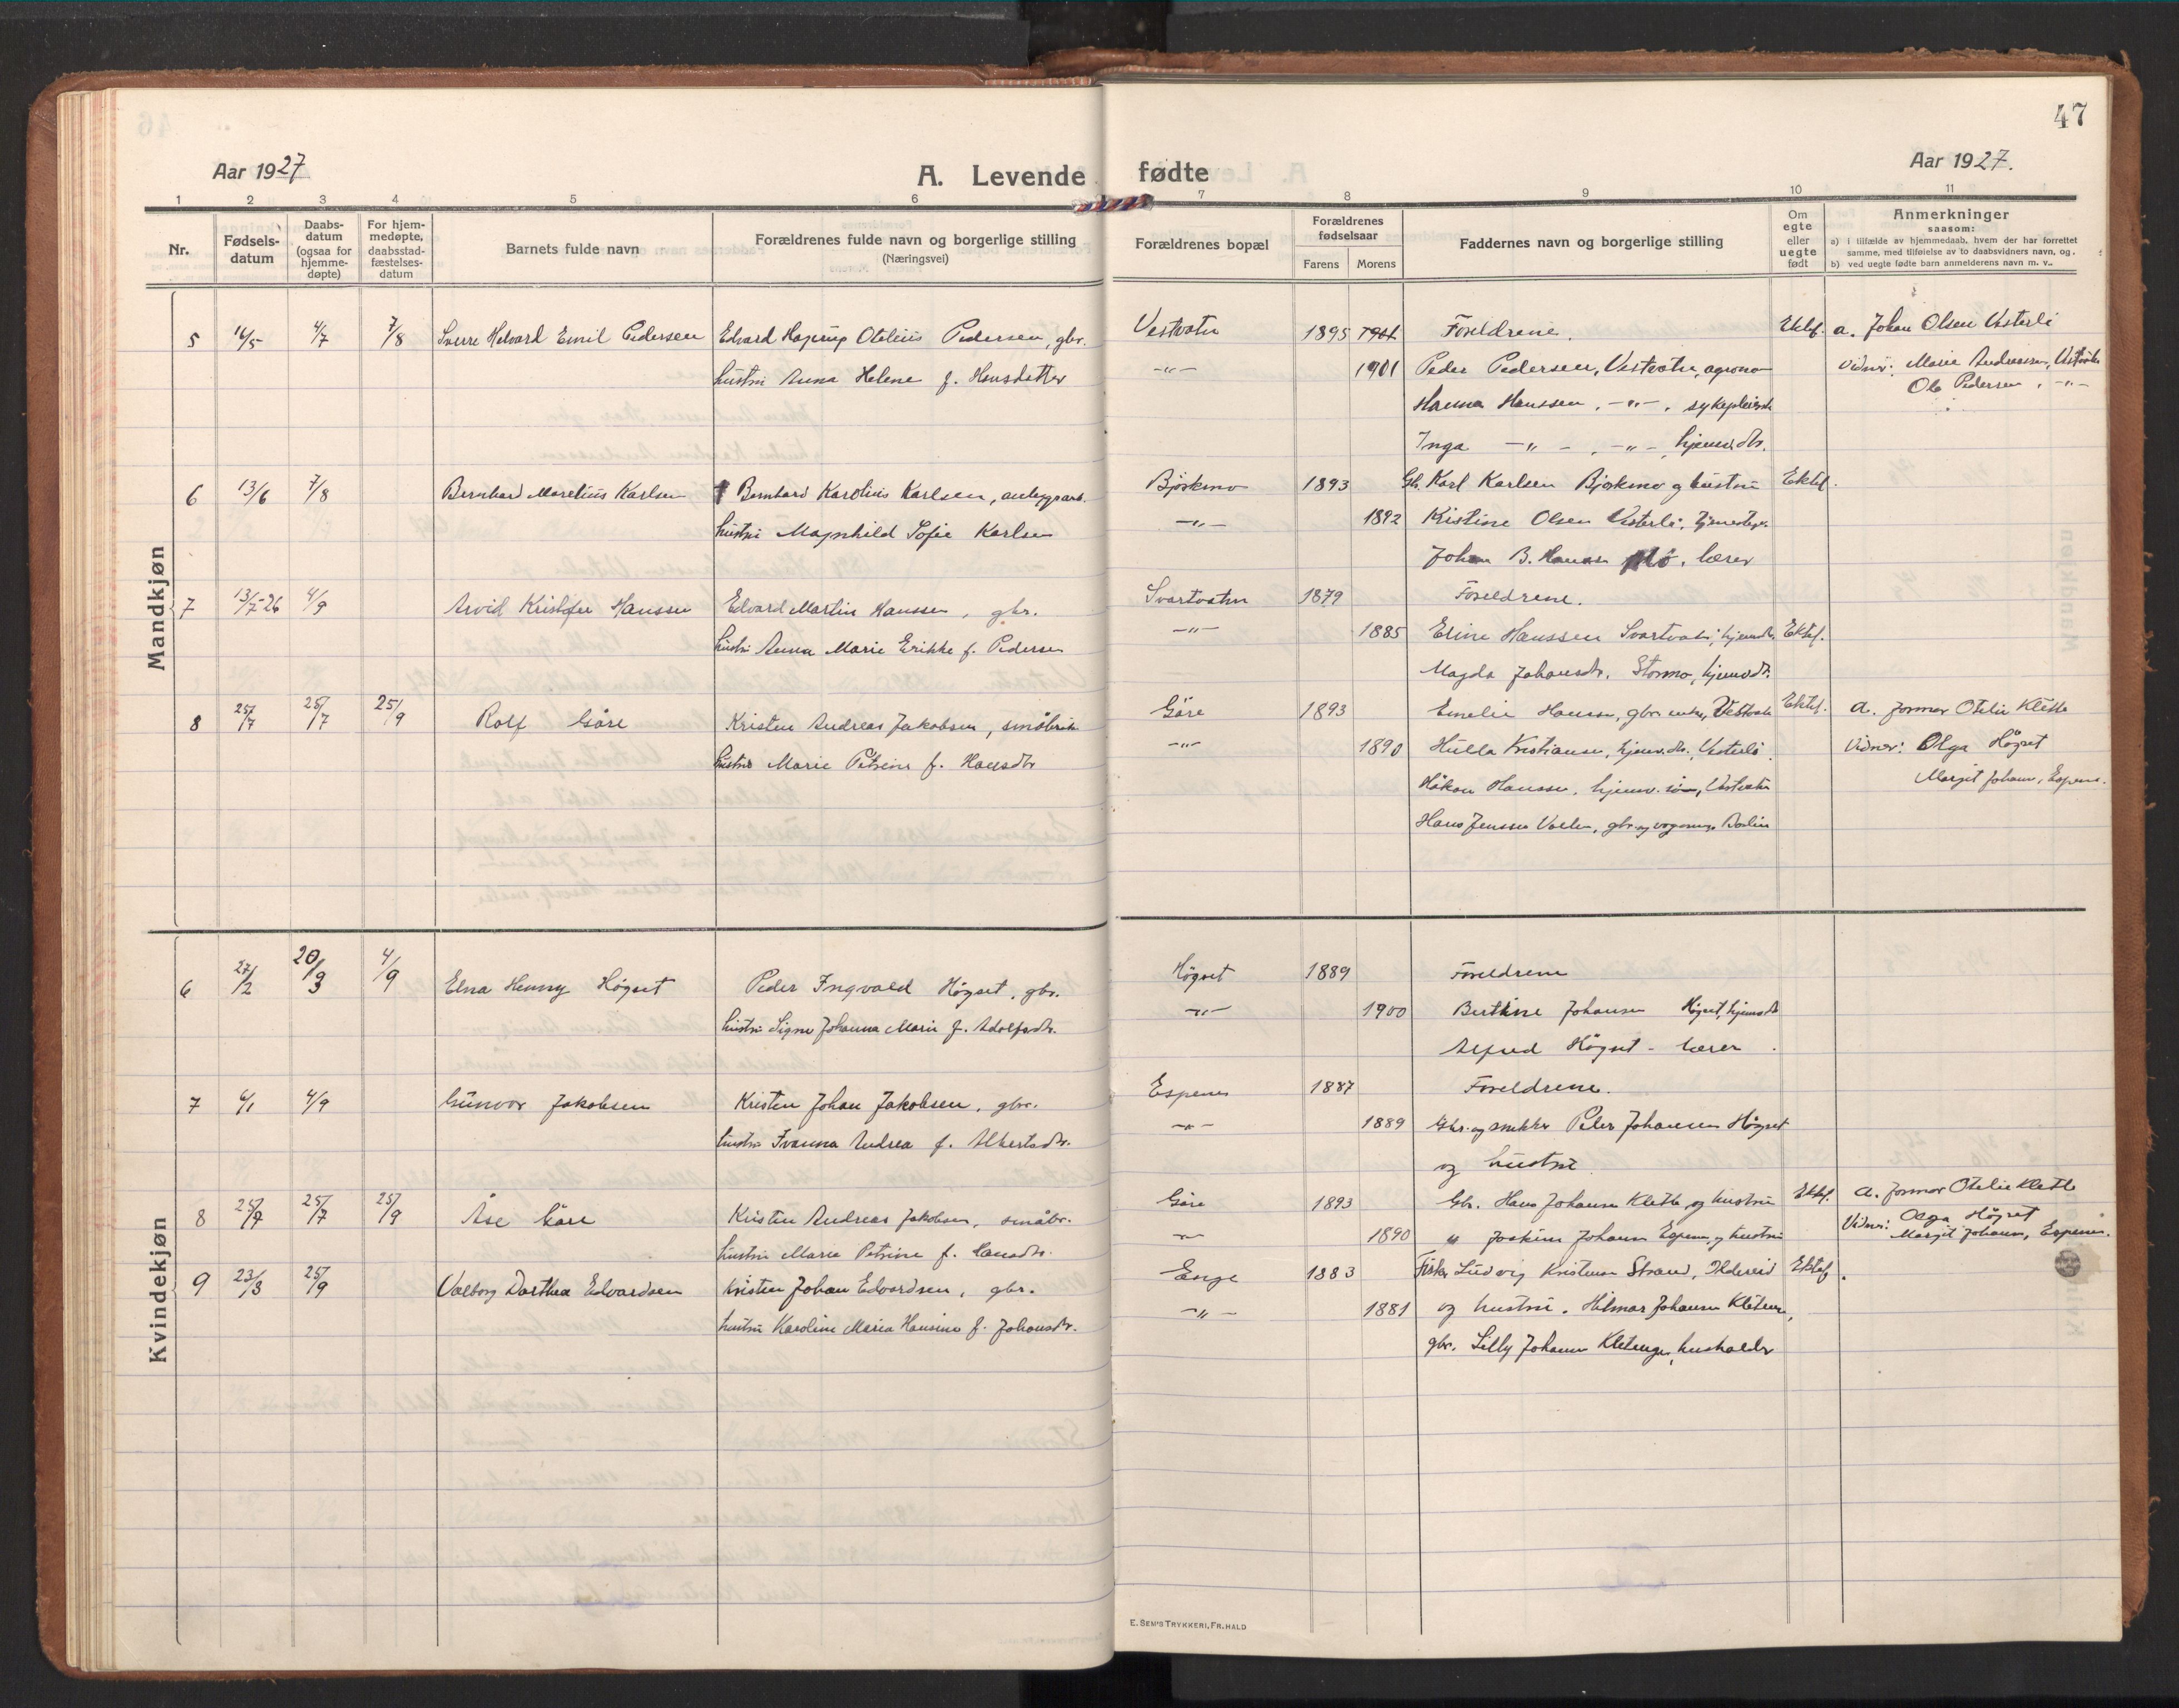 47
Aar 1927
A. Levende fødte
Aar 1927.
1 2 3 4 5 6 7 8 9 10 11
Nr.
Fødsels-
datum
Daabs-
datum
(ogsaa for
hjemme-
døpte)
For hjem-
medøpte,
daabsstad-
fæstelses-
datum
Barnets fulde navn
Forældrenes fulde navn og borgerlige stilling
(Næringsvei)
Forældrenes bopæl
Forældrenes
fødselsaar
Farens Morens
Faddernes navn og borgerlige stilling
Om
egte
eller
uegte
født
Anmerkninger
saasom:
a) i tilfælde av hjemmedaab, hvem der har forrettet
samme, med tilføielse av to daabsvidners navn, og.
b) ved uegte fødte barn anmelderens navn m. v..
Mandkjøn
5 16/5 4/7 7/8 Sverre Halvard Emil Pedersen Edvard Hagerup Otelius Pedersen, gbr. Vestvatn 1895 Foreldrene. Ektef. a. Johan Olsen Vesterli
hustru Anna Helene f. Hansdatter -"- 1901 Peder Pedersen, Vestvatn, agrono Vidner: Marie Andreassen, Vestvatn
Ole Pedersen, -"-
Hanna Hanssen, -"-, sykepleierske
Inga -"- -"- hjemv. dtr.
6 13/6 7/8 Bernhard Marelius Karlsen Bernhard Karolius Karlsen, anleggsarb. Bjørkmo 1893 Gb. Karl Karlsen Bjørkmo og hustru Ektef.
hustru Magnhild Sofie Karlsen -"- 1892 Kristine Olsen Vesterli, tjenestep.
Johan B. Hanssen, lærer
7 13/7-26 4/9 Arvid Kristofer Hanssen Edvard Martin Hanssen, gbr. Svartvatn 1879 Foreldrene.
hustru Anna Marie Erikke f. Pedersen -"- 1885 Erine Hanssen Svartvatn, hjemv. dtr. Ektef.
Magda Johansdtr. Stormo, hjemv. dtr.
8 25/7 25/7 25/9 Rolf Gåre Kristen Andreas Jakobsen, småbruk Gåre 1893 Emelie Hanssen, gbr. enke, Vestvatn Ektef. a. jormor Otelie Klette
hustru Marie Petrine f. Hansdtr -"- 1890 Hulla Kristiansen, hjemv. dtr. Vesterli Vidner: Olga Høgset
Margit Johansen, Espenes.
Håkon Hanssen, hjemv. søn, Vestvatn
Hans Jenssen Valen, gbr. og
Kvindekjøn
6 27/2 20/3 4/9 Elna Henny Høgset Peder Ingvald Høgset, gbr. Høgset 1889 Foreldrene
hustru Signe Johanna Marie f. Adolfsdtr. -"- 1900 Berthine Johansen Høgset, hjemv. dtr
Alfred Høgset - lærer
7 6/1 4/9 Gunvor Jakobsen Kristen Johan Jakobsen, gbr. Espenes 1887 Foreldrene.
hustru Ivanna Andrea f. Albertsdtr. -"- 1889 Gbr. og snekker Peter Johansen Høgset
og hustru
8 25/7 25/7 25/9 Åse Gåre Kristen Andreas Jakobsen, småbr. Gåre 1893 Gbr. Hans Johansen Klette og hustru Ektef. a. jormor Otelie Klette
hustru Marie Petrine f. Hansdtr. -"- 1890 " Joakim Johansen Espenes og hustru Vidner: Olga Høgset
Margit Johansen, Espenes.
9 23/3 25/9 Valborg Dorthea Edvardsen Kristen Johan Edvardsen, gbr. Enge 1883 Fisker Ludvig Kristensen Strand, Ildereid Ektef.
hustru Karoline Maria Hansine f. Johansdtr. -"- 1881 og hustru. Hilmar Johansen Kletenge,
gbr. Lilly Johansen Kletenge, husholder
E. SEM'S TRYKKERI, FR. HALD